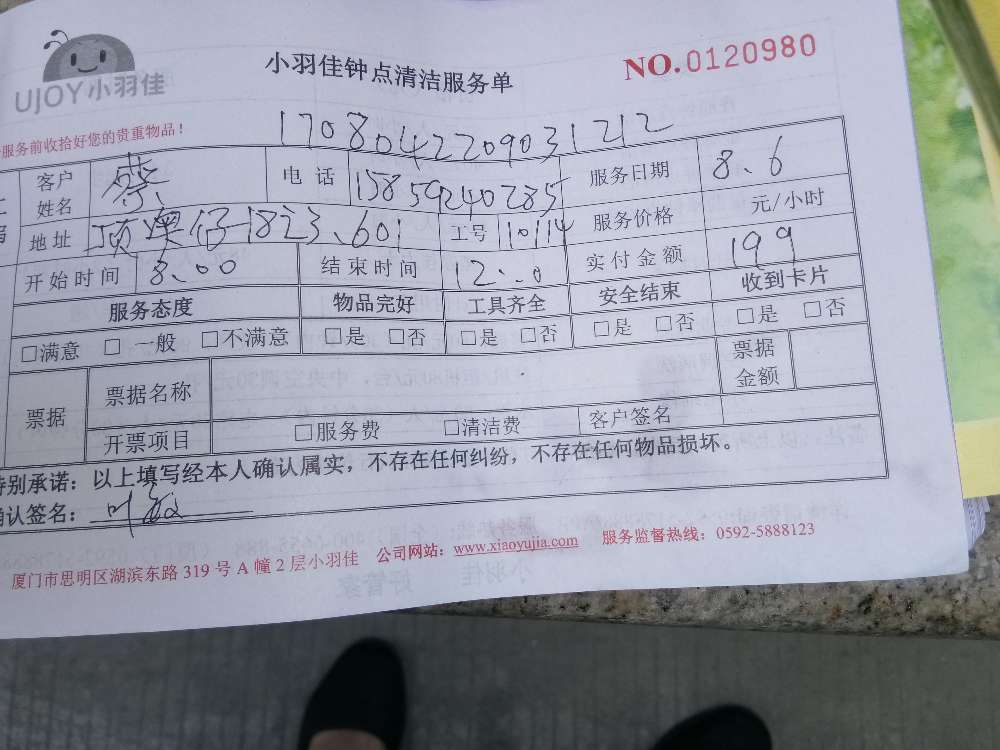 UJOY小羽佳
小羽佳钟点清洁服务单
NO.0120980
服务前收拾好您的贵重物品！
1708042209031212
客户姓名 蔡 电话 15859240285 服务日期 8、6
地址 顶澳仔1823、601 工号 110114 服务价格 元/小时
开始时间 8:00 结束时间 12:.0 实付金额 199
服务态度 物品完好 工具齐全 安全结束 收到卡片
□满意 □ 一般 □不满意 □是 □否 □是 □否 □是 □否 □是 □否
票据 票据名称 票据金额
开票项目 □服务费 □清洁费 客户签名
特别承诺：以上填写经本人确认属实，不存在任何纠纷，不存在任何物品损坏。
确认签名：
厦门市思明区湖滨东路 319 号 A 幢 2 层小羽佳 公司网站：www.xiaoyujia.com 服务监督热线：0592-5888123